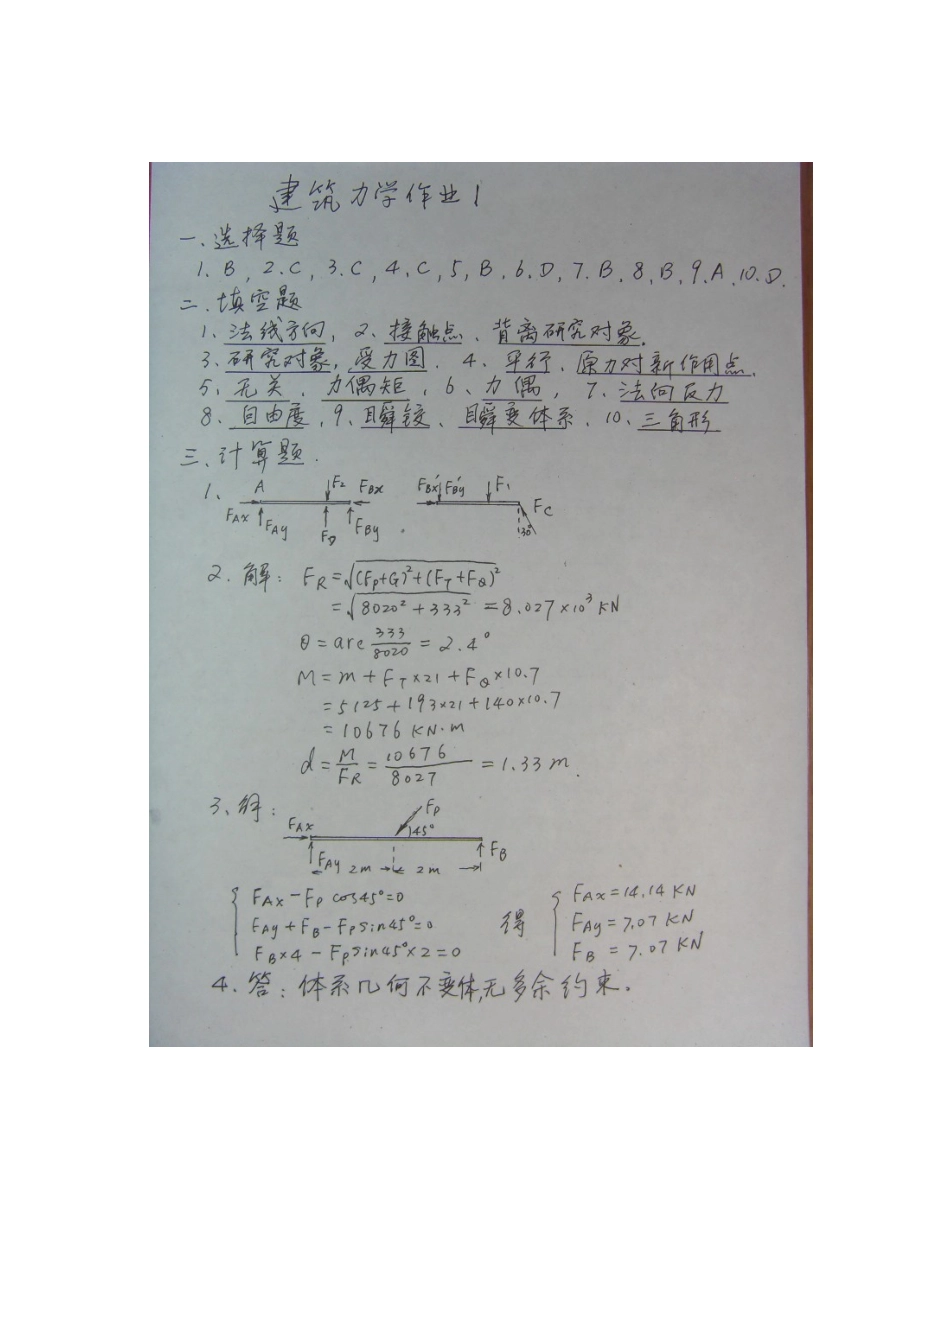 建筑力学作业1
一、选择题
1. B, 2. C, 3. C, 4. C, 5, B, 6. D, 7. B. 8. B. 9. A. 10. D.
二. 填空题
1、法线方向, 2、接触点、背离研究对象.
3、研究对象, 受力图. 4、平行、原力对新作用点.
5、无关、力偶矩, 6、力偶, 7、法向反力
8、自由度, 9、瞬铰、瞬变体系, 10、三角形
三、计算题.
1、 A F₂ F_Bx F_Bx′ F_By′ F₁
F_Ax F_Ay F_D F_By F_C 30°
2. 解: F_R=√(F_P+G)²+(F_T+F_Q)²
=√8020²+333² =8.027×10³ KN
θ=arc 333/8020 = 2.4°
M=m+F_T×21+F_Q×10.7
=5125+193×21+140×10.7
=10676 KN·m
d=M/F_R=10676/8027 =1.33 m.
3、解: F_P
F_Ax 45°
F_Ay 2m 2m F_B
F_Ax-F_P cos45°=0
F_Ay+F_B-F_P sin45°=0
F_B×4-F_P sin45°×2=0
得
F_Ax=14.14 KN
F_Ay=7.07 KN
F_B=7.07 KN
4、答: 体系几何不变体,无多余约束。